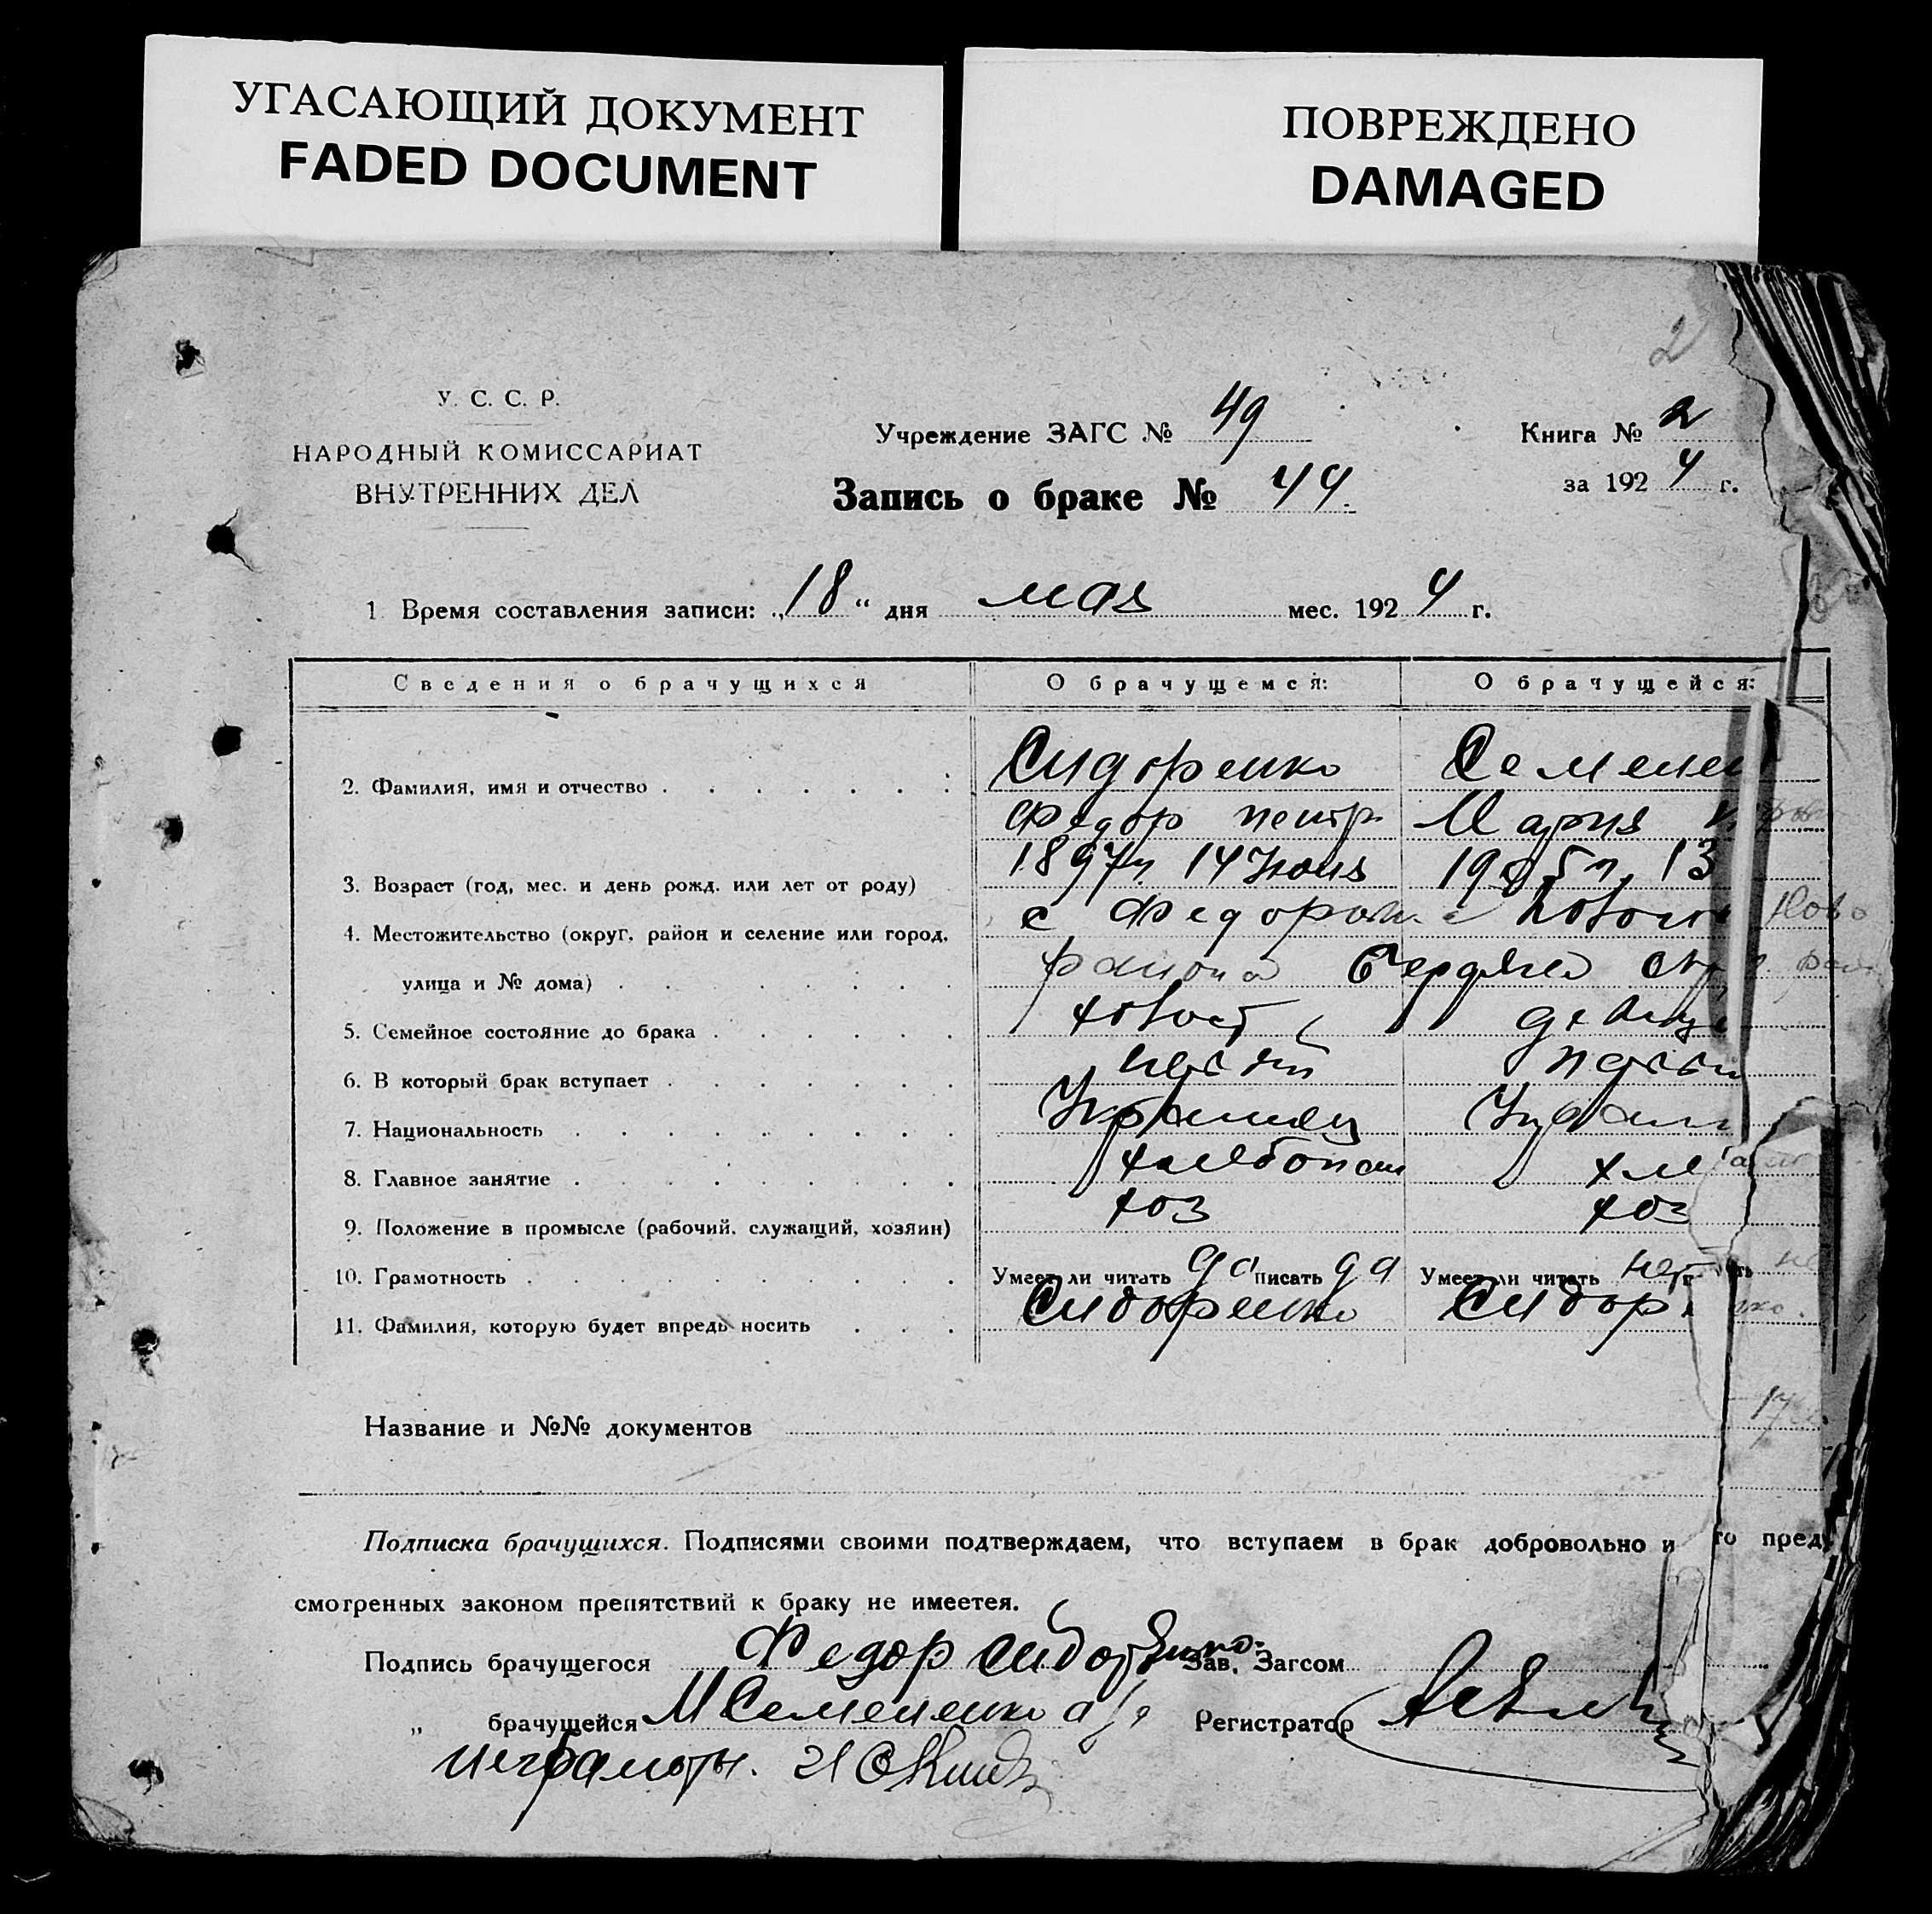 УГАСАЮЩИЙ ДОКУМЕНТ
FADED DOCUMENT
ПОВРЕЖДЕНО
DAMAGED
2
У. С. С. Р.
НАРОДНЫЙ КОМИССАРИАТ
ВНУТРЕННИХ ДЕЛ
Учреждение ЗАГС № 49
Книга № 2
Запись о браке № 44.
за 1924 г.
1 Время составления записи: „18“ дня мая мес. 1924 г.
Сведения о брачущихся О брачущемся: О брачущейся:
2. Фамилия, имя и отчество Сидоренко Семенен
Федор петр Мария
3. Возраст (год, мес. и день рожд. или лет от роду) 1897г. 14 Июня 1905г. 13
4. Местожительство (округ, район и селение или город, с Федоровк Ново
улица и № дома) района Бердян
5. Семейное состояние до брака холост девиц
6. В который брак вступает
7. Национальность Украинец Украин
8. Главное занятие хлебопаш хле
9. Положение в промысле (рабочий, служащий, хозяин) хоз хоз
10. Грамотность Умеет ли читать да писать да Умеет ли читать нет ть не
11. Фамилия, которую будет впредь носить Сидоренко Сидор нко.
Название и №№ документов
Подписка брачущихся. Подписями своими подтверждаем, что вступаем в брак добровольно и то преду
смотренных законом препятствий к браку не имеетея.
Подпись брачущегося Федор Сидоренко. Зав. Загсом
„ брачущейся М Семененко а Регистратор
неграмотн.